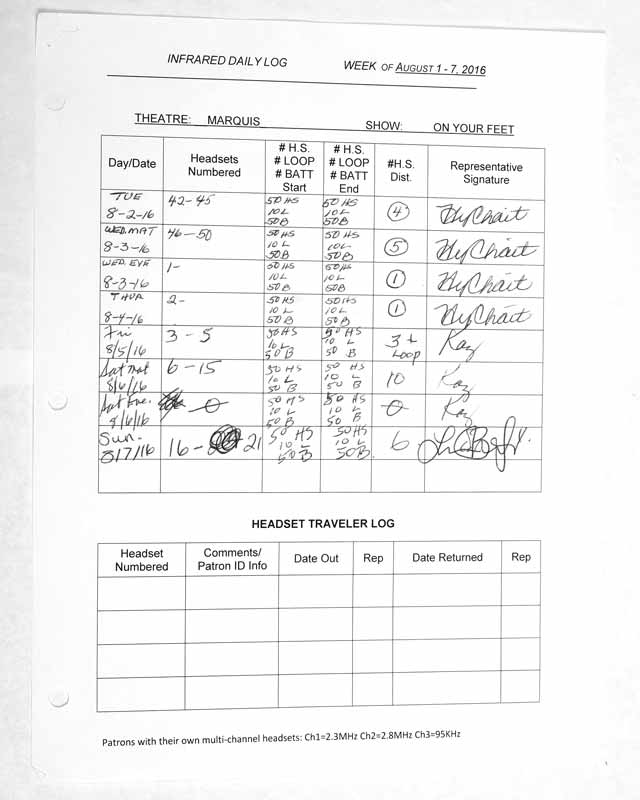 INFRARED DAILY LOG WEEK OF AUGUST 1 - 7, 2016
THEATRE: MARQUIS SHOW: ON YOUR FEET
Day/Date
Headsets
Numbered
# H.S.
# LOOP
# BATT
Start
# H.S.
# LOOP
# BATT
End
#H.S.
Dist.
Representative
Signature
TUE
8-2-16
42-45
50 HS
10 L
50B
50 HS
10 L
50B
4
WED. MAT
8-3-16
46-50
50 HS
10 L
50B
50 HS
10L
50B
5
WED. EVE
8-3-16
1-
50 HS
10 L
50B
50 HS
10 L
50B
1
THUR
8-4-16
2-
50 HS
10 L
50B
50 HS
10 L
50B
1
Fri
8/5/16
3 - 5
50 HS
10 L
50 B
50 HS
10 L
50 B
3 +
Loop
Kay
Sat Mat
8/6/16
6 - 15
50 HS
10 L
50 B
50 HS
10 L
50 B
10
Kay
Sat Eve.
8/6/16
0
50 HS
10 L
50 B
50 HS
10 L
50 B
0
Kay
Sun.
8/7/16
16 - 21
50 HS
10 L
50 B
50 HS
10 L
50B
6
HEADSET TRAVELER LOG
Headset
Numbered
Comments/
Patron ID Info
Date Out
Rep
Date Returned
Rep
Patrons with their own multi-channel headsets: Ch1=2.3MHz Ch2=2.8MHz Ch3=95KHz